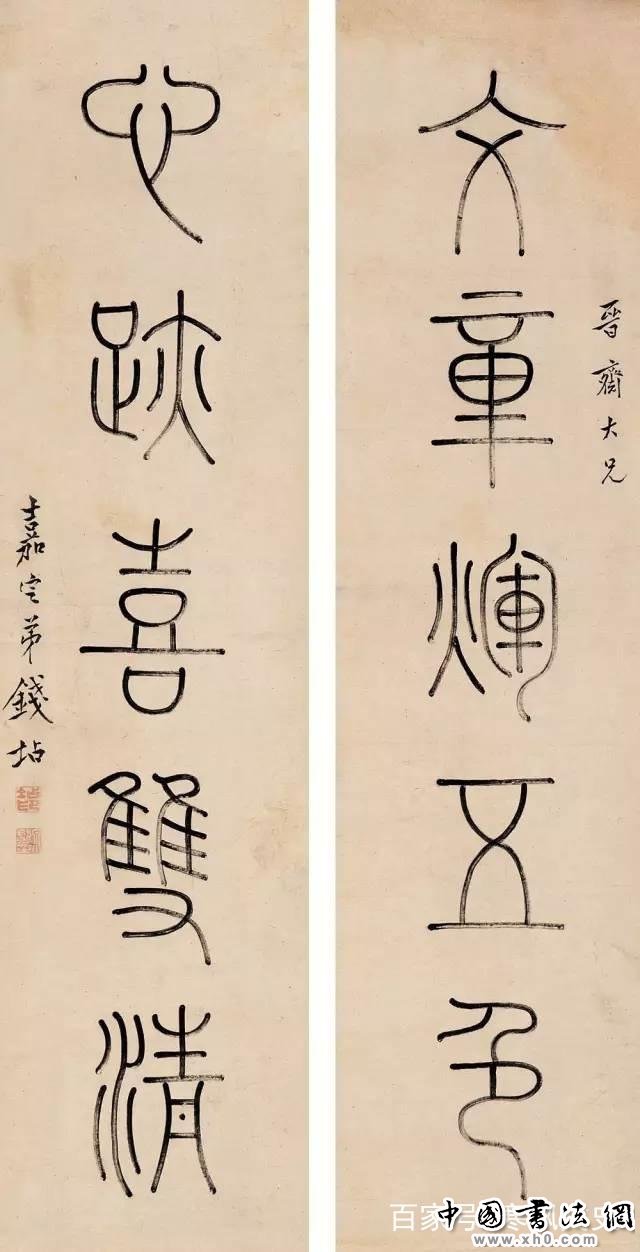 晉齋大兄
文章煇五色
心跡喜雙清
嘉定弟錢坫
百家号
中國书法網
www.xh0.com